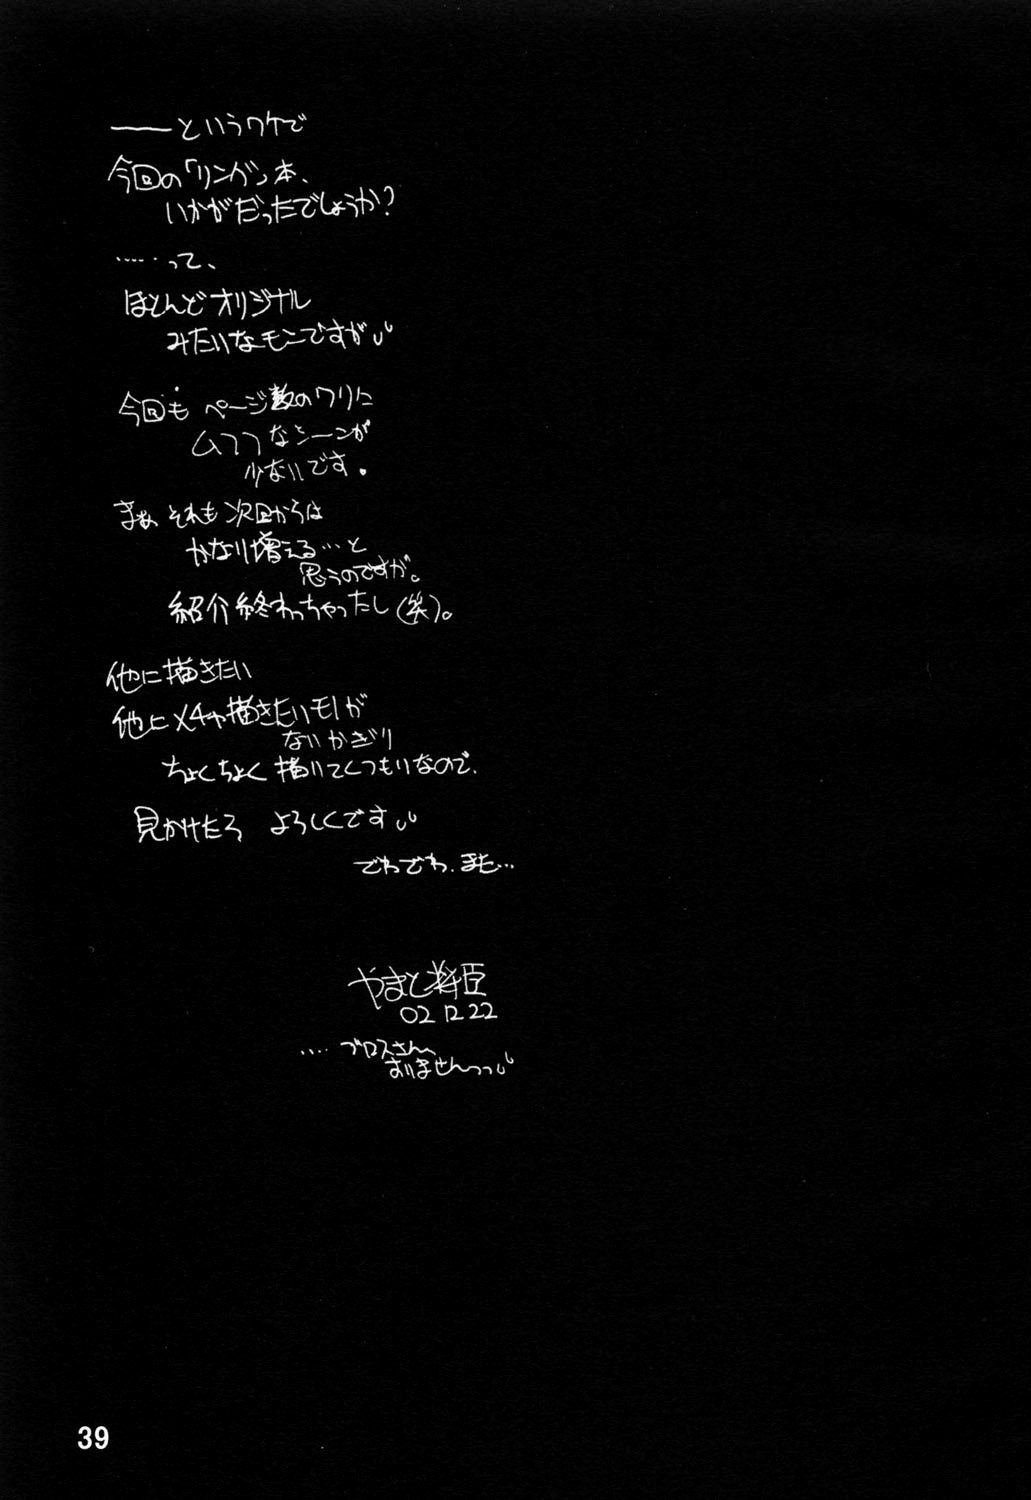 ――というワケで
今回の「リング」本、
いかがだったでしょうか?
……って、
ほとんどオリジナル
みたいなモンですが
今回も ページ数のワリに
ムフフなシーンが
少ないです。
まぁ それも次回からは
かなり増える…と
思うのですが。
紹介終わっちゃったし(笑)。
他に描きたい
他にメチャ描きたいモノが
ないかぎり
ちょくちょく描いてくつもりなので、
見かけたら よろしくです
でわでわ、また…
やまと
02 12 22
…. ブロスさん、
おりませんっっ
39